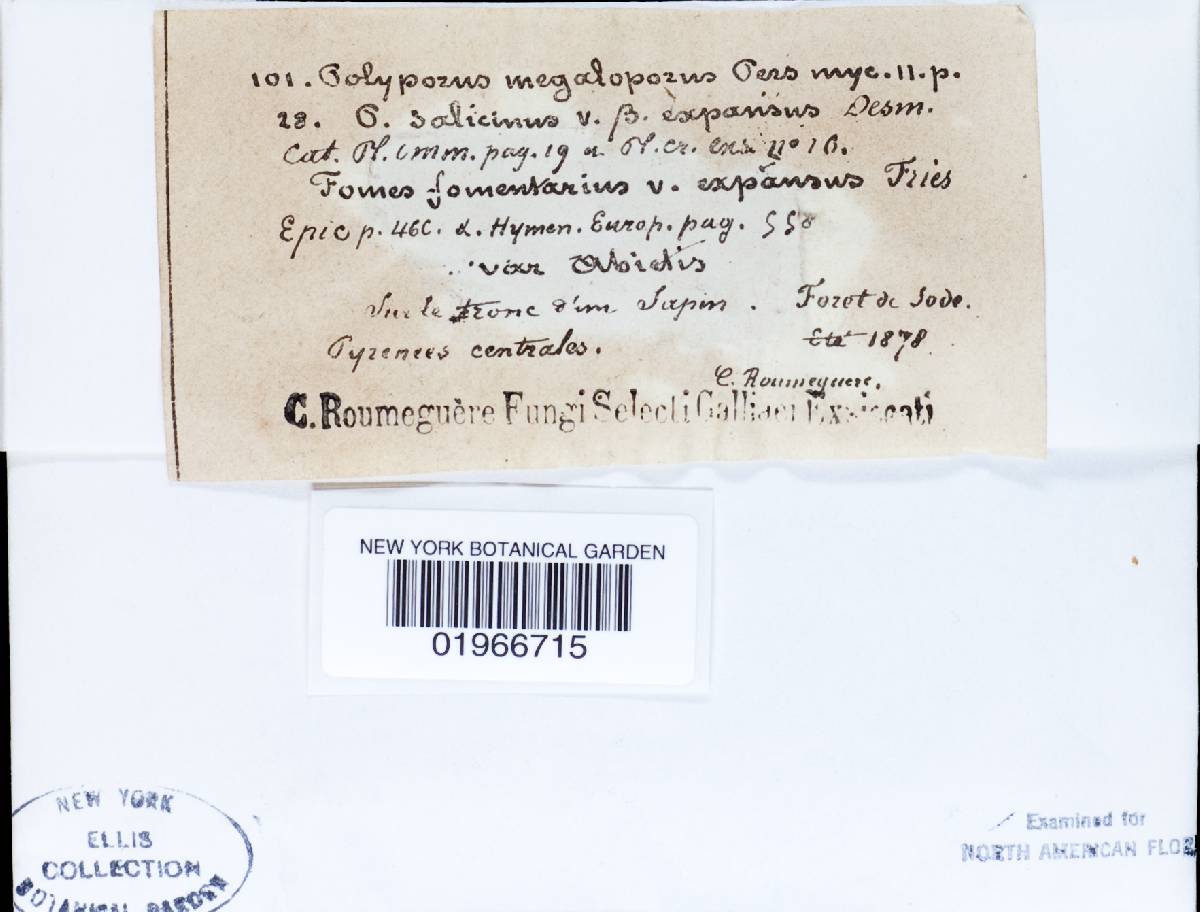 101. Polyporus megaloporus Pers myc. 11. p.
28. P. Salicinus v. β. expansus Desm.
Cat. Pl. omm. pag. 19 & Pl. cr. exs. nº 16.
Fomes fomentarius v. expansus Fries
Epic p. 466. & Hymen. Europ. pag. 558
var Abietis
Sur le tronc d'un Sapin. Foret de Sode.
Pyrenees centrales. Eté 1878
C. Roumeguere.
C. Roumeguère Fungi Selecti Galliaei Exsiccati
NEW YORK BOTANICAL GARDEN
01966715
NEW YORK
ELLIS
COLLECTION
BOTANICAL GARDEN
Examined for
NORTH AMERICAN FLOR